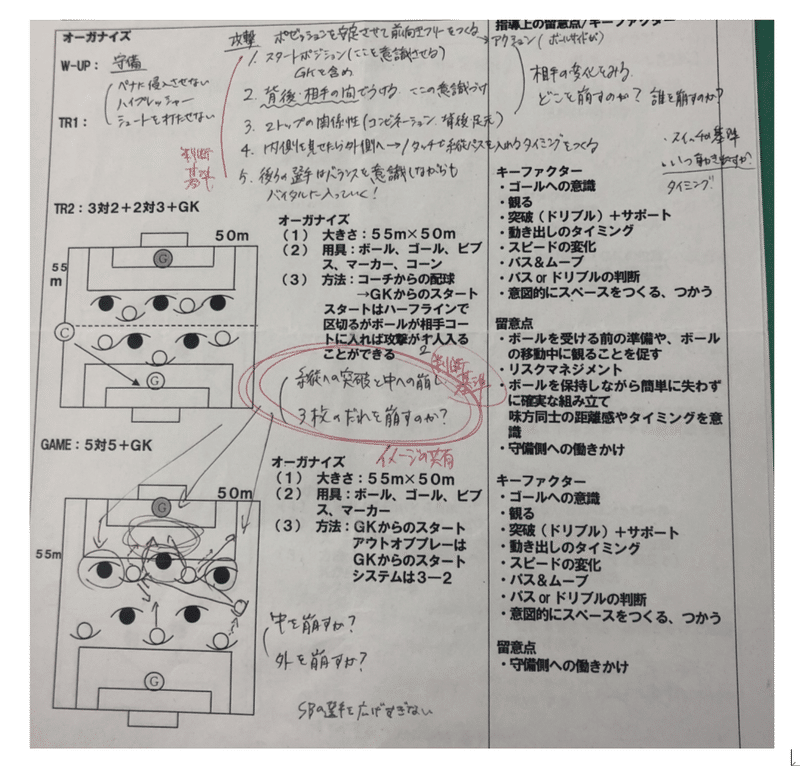 オーガナイズ
W-UP：守備
ペナに侵入させない
ハイプレッシャー
シュートを打たせない
TR1：
攻撃 ポゼッションを安定させて前向きフリーをつくる→アクション(ボールサイド
1. スタートポジション(ここを意識させる)
GKを含め
2. 背後・相手の間でうける。ここの意識づけ
3. 2トップの関係性(コンビネーション、背後、足元)
4. 内側を見せたら外側へ→1タッチで縦パスを入れるタイミングをつくる
5. 後ろの選手はバランスを意識しながらも
バイタルに入っていく！
判断
基準
指導上の留意点/キーファクター
相手の変化をみる。
どこを崩すのか？誰を崩すのか？
・スイッチの基準
・いつ動き出すか？
タイミング
キーファクター
・ゴールへの意識
・観る
・突破（ドリブル）＋サポート
・動き出しのタイミング
・スピードの変化
・パス＆ムーブ
・パス or ドリブルの判断
・意図的にスペースをつくる、つかう
留意点
・ボールを受ける前の準備や、ボール
の移動中に観ることを促す
・リスクマネジメント
・ボールを保持しながら簡単に失わず
に確実な組み立て
味方同士の距離感やタイミングを意
識
・守備側への働きかけ
TR2：3対2＋2対3＋GK
50m
55
m
G
C
G
オーガナイズ
（1） 大きさ：55m×50m
（2） 用具：ボール、ゴール、ビブ
ス、マーカー、コーン
（3） 方法：コーチからの配球
→GKからのスタート
スタートはハーフラインで
区切るがボールが相手コー
トに入れば攻撃が1人入る
ことができる
2
判断
基準
縦への突破と中への崩し
3枚のだれを崩すのか？
イメージの共有
GAME：5対5＋GK
50m
55m
G
G
オーガナイズ
（1） 大きさ：55m×50m
（2） 用具：ボール、ゴール、ビブ
ス、マーカー
（3） 方法：GKからのスタート
アウトオブプレーは
GKからのスタート
システムは3ー2
中を崩すか？
外を崩すか？
SBの選手を広げすぎない
キーファクター
・ゴールへの意識
・観る
・突破（ドリブル）＋サポート
・動き出しのタイミング
・スピードの変化
・パス＆ムーブ
・パス or ドリブルの判断
・意図的にスペースをつくる、つかう
留意点
・守備側への働きかけ